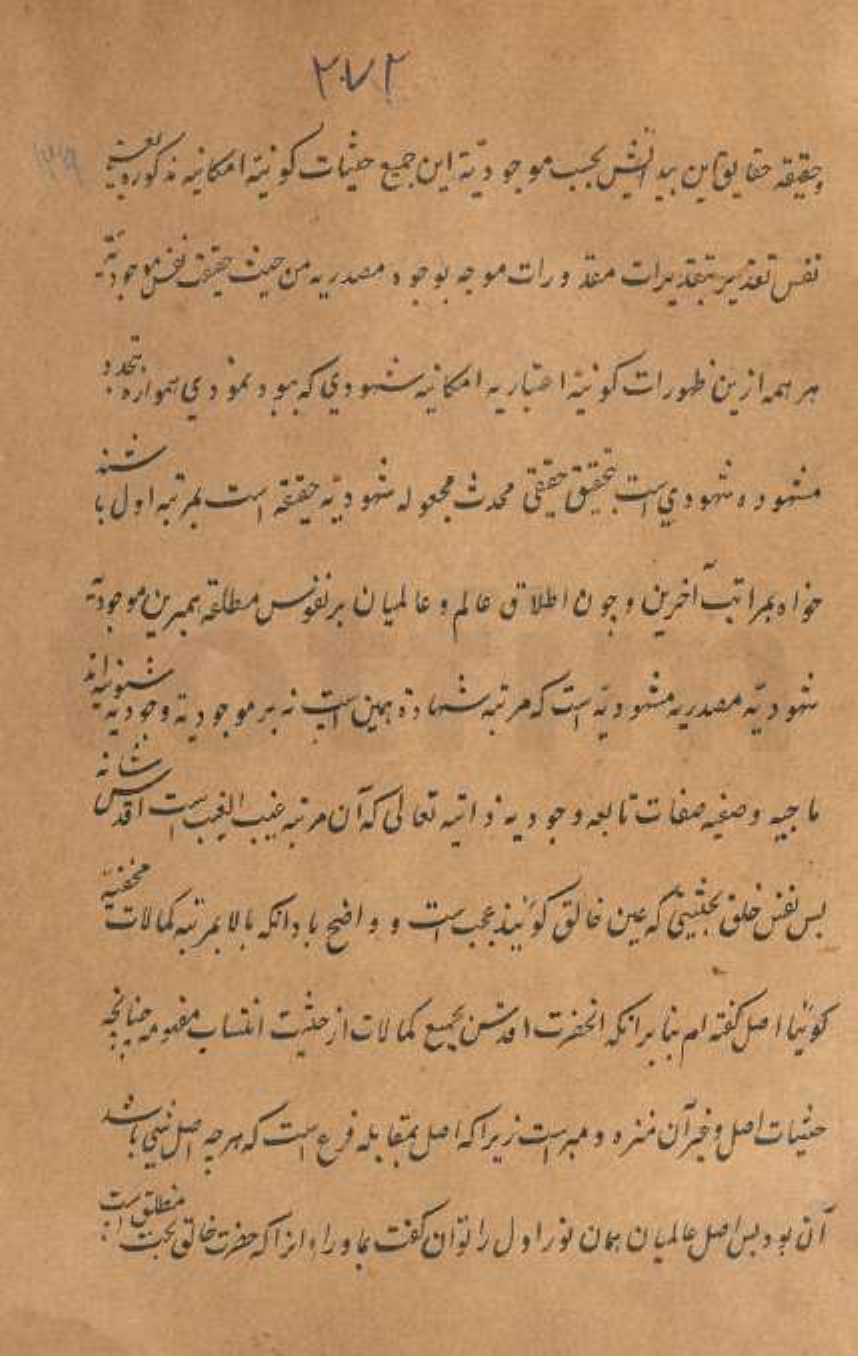 ۲۷۲
وحقیقه حقایق این بحسب موجودیّة این جمیع حیثیات کونیّة امکانیه مذکوره
نفس تقدیر بتقدیرات مقدورات موجه بوجود مصدریه من حیث حقیقت نفس موجودیّة
هر همه ازین ظهورات کونیّة اعتباریه امکانیه شهودی که ببود نمودی همواره بتجدد
مشهوده شهودی است بتحقیق حقیقی محدث مجعوله شهودیّه حقیقه است بمرتبه اول باشند
خواه بمراتب آخرین و چون اطلاق عالم و عالمیان بر نفوس مطلقه بهمین موجودیّة
شهودیّه مصدریه مشهودیّه است که مرتبه شهادة همین است نه بر موجودیة وجودیّه
وصفیه صفات تابعه وجودیه ذاتیه تعالی که آن مرتبه غیب الغیب است اقدس شانه
بس نفس خلق بحیثیتی که عین خالق کویند عجب است و واضح باد انکه بالا بمرتبه کمالات مخفیه
اصل کفته ام بنا بر انکه انحضرت اقدسش بجمیع کمالات از حیثیت انتساب مفهومه چنانچه
حیثیات اصل و غیر آن منزه و مبرا است زیرا که اصل بمقابله فرع است که هر چه اصل شیی باشد
آن بود بس اصل عالمیان همان نور اول را توان کفت بماوراء انرا که حضرت خالق بحت مطلق است